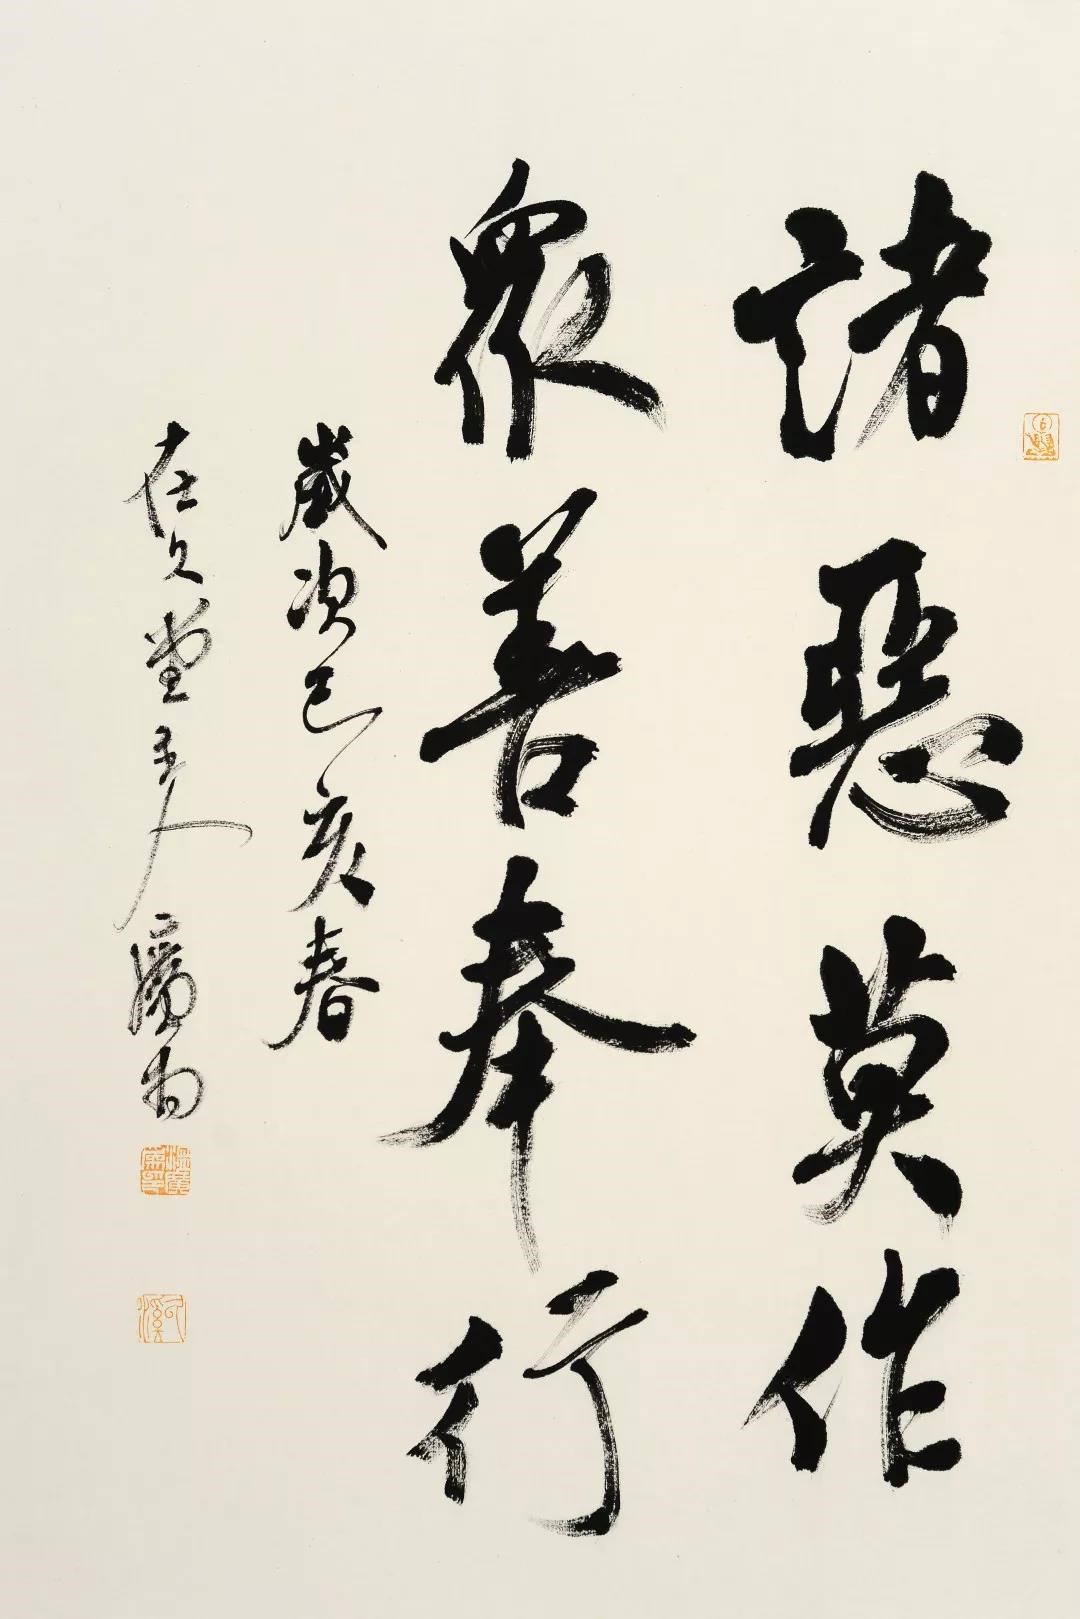 諸惡莫作
眾善奉行
歲次己亥春
在久堂主人廣為